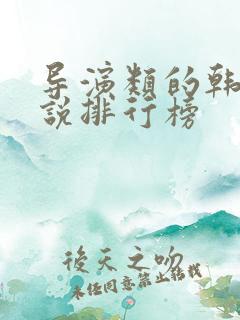 导演类的韩
说排行榜
後天之吻
未经同意禁止转载